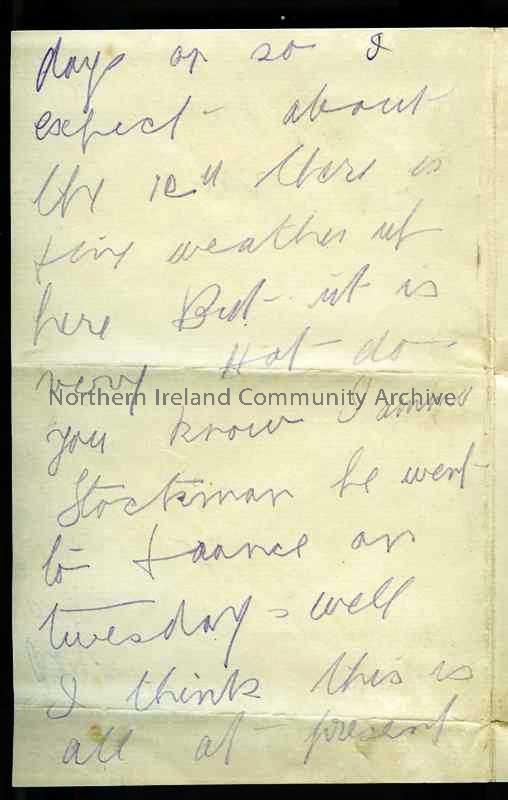 days or so I
expect about
the 12th there is
fine weather up
here But it is
very Hot do
Northern Ireland Community Archive
you know James
Stockman he went
to France on
tuesday well
I think this is
all at present